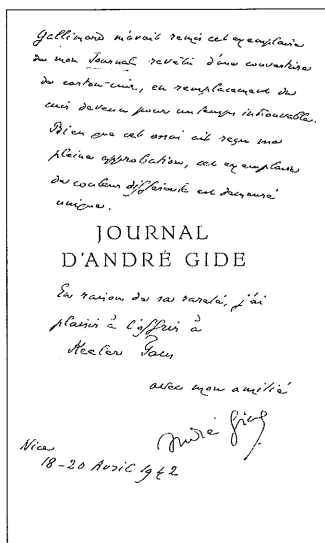 Gallimard m'avait remis cet exemplaire
de mon Journal revêtu d'une couverture
de carton-cuir, en remplacement du
cuir devenu pour un temps introuvable.
Bien que cet essai eût reçu ma
pleine approbation, cet exemplaire
de couleur différente est demeuré
unique.
JOURNAL
D'ANDRÉ GIDE
En raison de sa rareté, j'ai
plaisir à l'offrir à
Keeler Faus
avec mon amitié
André Gide
Nice
18-20 Avril 1942